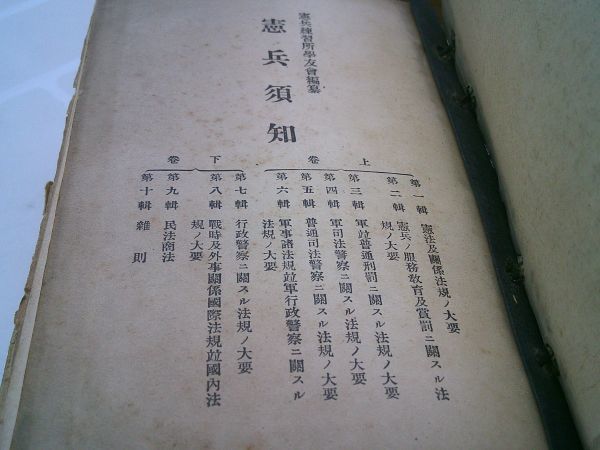 憲兵練習所學友會編纂
憲兵須知
上卷
第一輯 憲法及關係法規ノ大要
第二輯 憲兵ノ服務敎育及賞罰ニ關スル法
規ノ大要
第三輯 軍竝普通刑罰ニ關スル法規ノ大要
第四輯 軍司法警察ニ關スル法規ノ大要
第五輯 普通司法警察ニ關スル法規ノ大要
第六輯 軍事諸法規竝軍行政警察ニ關スル
法規ノ大要
下卷
第七輯 行政警察ニ關スル法規ノ大要
第八輯 戰時及外事關係國際法規竝國內法
規ノ大要
第九輯 民法商法
第十輯 雜則